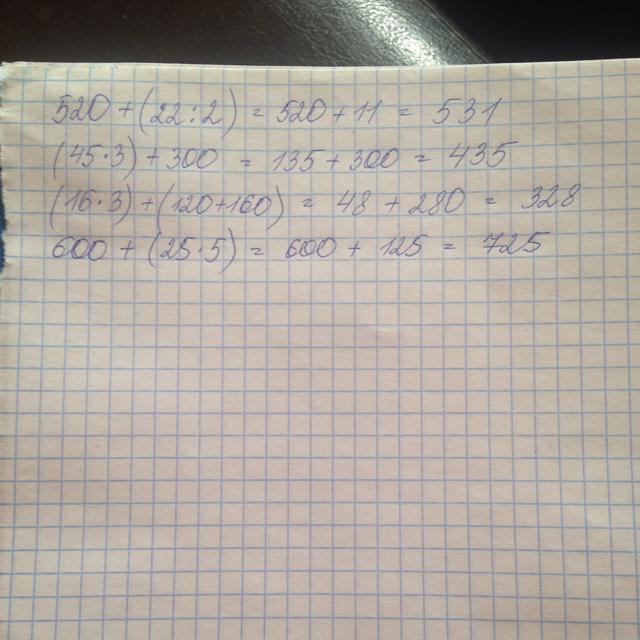 520 + (22 : 2) = 520 + 11 = 531
(45 · 3) + 300 = 135 + 300 = 435
(16 · 3) + (120 + 160) = 48 + 280 = 328
600 + (25 · 5) = 600 + 125 = 725